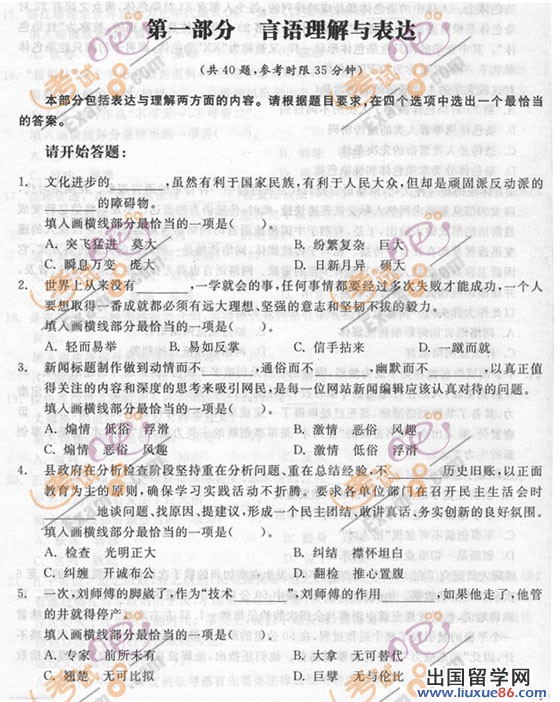 第一部分 言语理解与表达
(共40题,参考时限35分钟)
本部分包括表达与理解两方面的内容。请根据题目要求,在四个选项中选出一个最恰当
的答案。
请开始答题:
1. 文化进步的________,虽然有利于国家民族,有利于人民大众,但却是顽固派反动派的
________的障碍物。
填入画横线部分最恰当的一项是( )。
A. 突飞猛进 莫大 B. 纷繁复杂 巨大
C. 瞬息万变 庞大 D. 日新月异 硕大
2. 世界上从来没有________,一学就会的事,任何事情都要经过多次失败才能成功,一个人
要想取得一番成就都必须有远大理想、坚强的意志和坚韧不拔的毅力。
填入画横线部分最恰当的一项是( )。
A. 轻而易举 B. 易如反掌 C. 信手拈来 D. 一蹴而就
3. 新闻标题制作做到动情而不________,通俗而不________,幽默而不________,以真正值
得关注的内容和深度的思考来吸引网民,是每一位网站新闻编辑应该认真对待的问题。
填入画横线部分最恰当的一项是( )。
A. 煽情 低俗 浮滑 B. 激情 恶俗 风趣
C. 煽情 恶俗 风趣 D. 激情 低俗 浮滑
4. 县政府在分析检查阶段坚持重在分析问题、重在总结经验,不________历史旧账,以正面
教育为主的原则,确保学习实践活动不折腾。要求各单位部门在召开民主生活会时
________地谈问题、找原因、提建议,形成一个民主团结、敢讲真话、务实创新的良好氛围。
填入画横线部分最恰当的一项是( )。
A. 检查 光明正大 B. 纠结 襟怀坦白
C. 纠缠 开诚布公 D. 翻检 推心置腹
5. 一次,刘师傅的脚崴了,作为“技术________”,刘师傅的作用________,如果他走了,他管
的井就得停产。
填入画横线部分最恰当的一项是( )。
A. 专家 前所未有 B. 大拿 无可替代
C. 翘楚 无可比拟 D. 巨擘 无与伦比
出国留学网
www.liuxue86.com